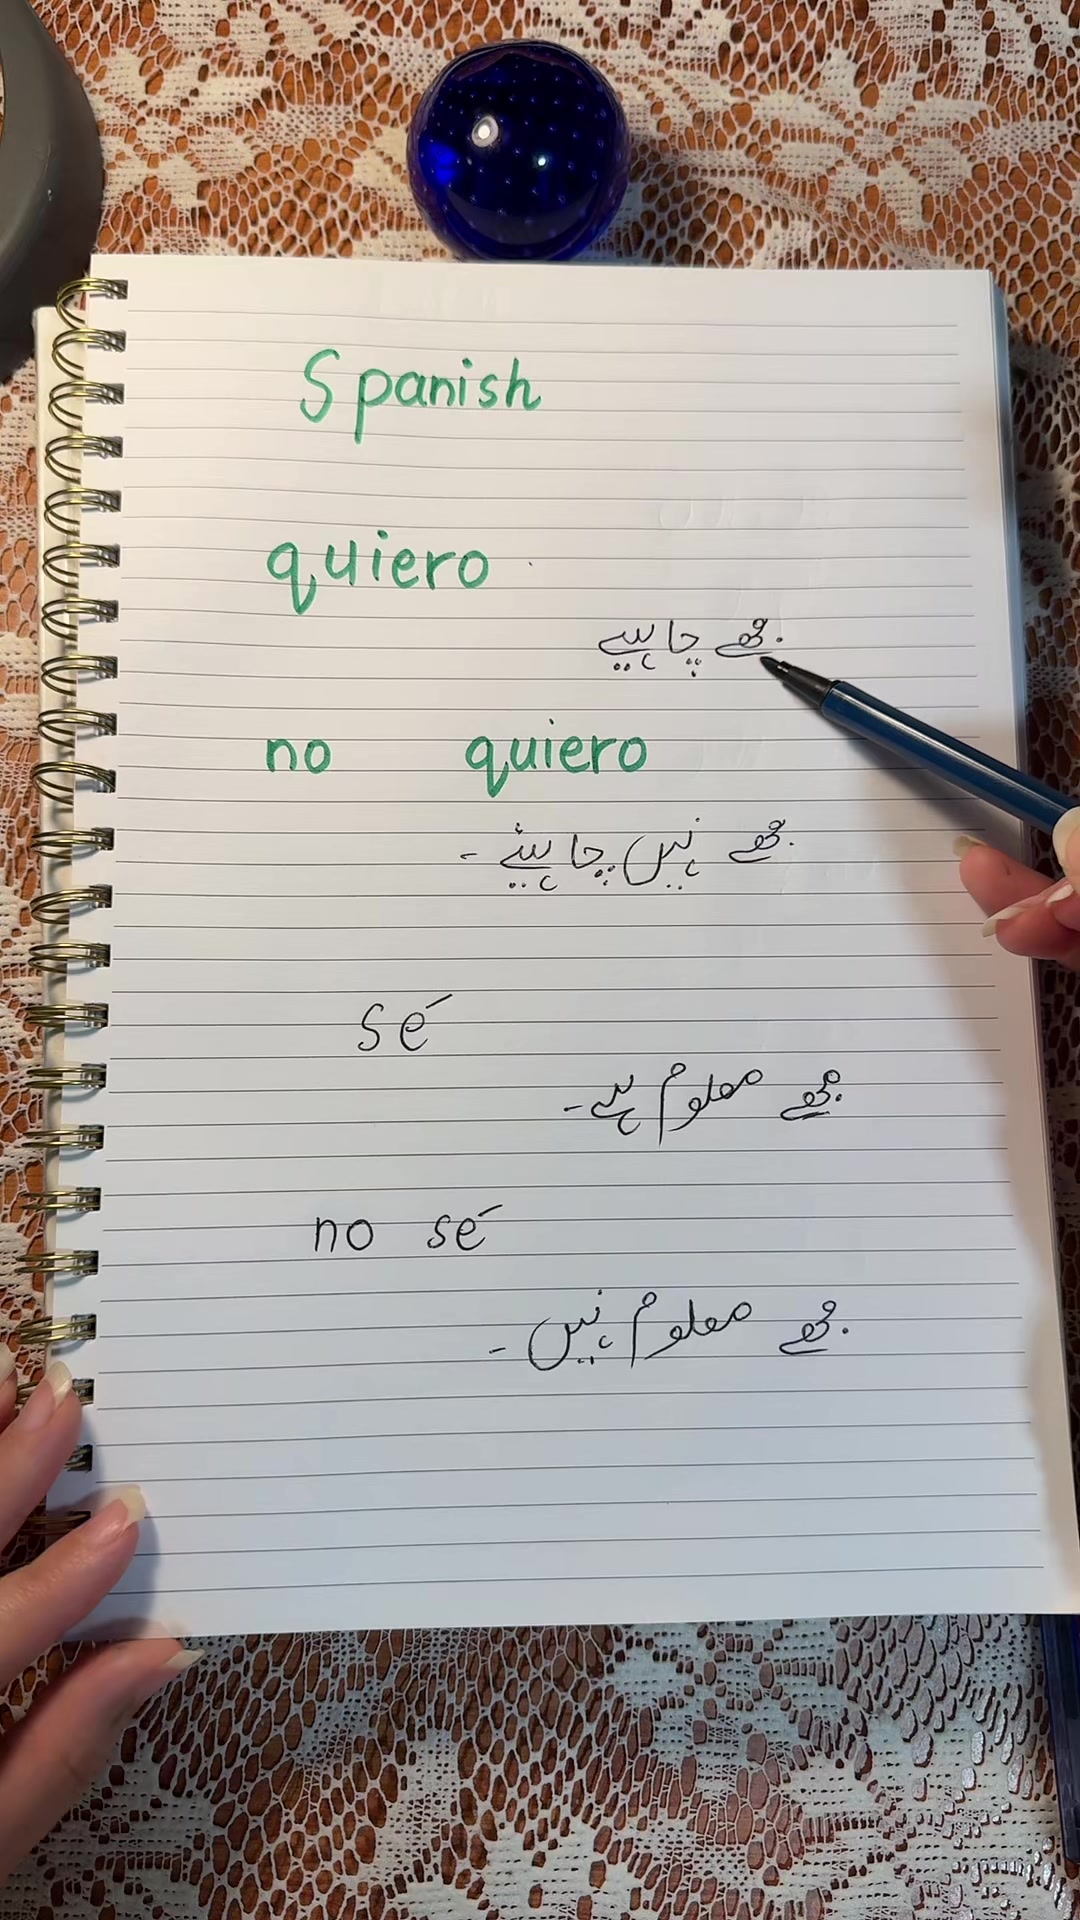 Spanish
quiero
مجھے چاہیے
no quiero
مجھے نہیں چاہئیے -
sé
مجھے معلوم ہے -
no sé
مجھے معلوم نہیں -